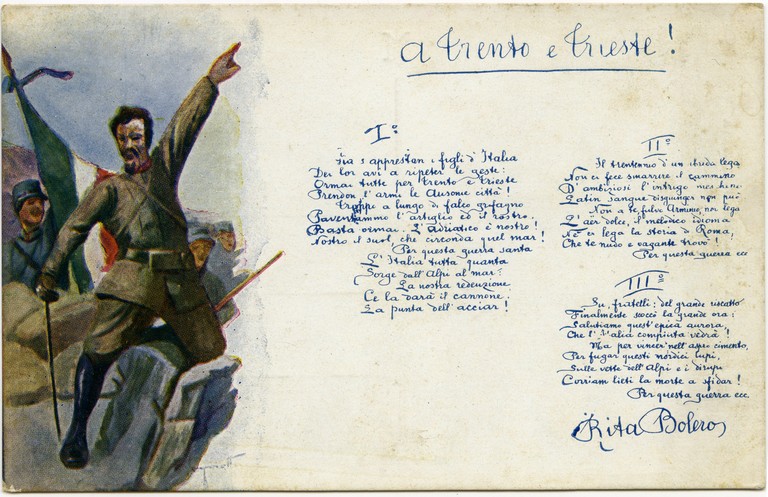 A Trento e Trieste!
I°
Già s'apprestan i figli d'Italia
Dei lor avi a ripeter le geste:
Ormai tutte per Trento e Trieste
Prendon l'armi le Ausonie città!
Troppo a lungo di falco grifagno
Paventammo l'artiglio ed il rostro;
Basta ormai. L'Adriatico è nostro!
Nostro il suol, che circonda quel mar!
Per questa guerra santa
L'Italia tutta quanta
Sorge dall'Alpi al mar:
La nostra redenzione
Ce la darà il cannone,
La punta dell'acciar!
II°
Il trentennio d'un ibrida lega
Non ci fece smarrire il cammino
D'ambiziosi l'intrigo meschino
Latin sangue disgiunger non può
Non a te fulvo Arminio, noi lega
L'aër dolce, il melodico idioma
Nè ci lega la storia di Roma,
Che te nudo e vagante trovò!
Per questa guerra ecc
III°
Su, fratelli; del grande riscatto
Finalmente scoccò la grande ora;
Salutiamo quest'epica aurora,
Che l'Italia compiuta vedrà!
Ma per vincer nell'aspro cimento,
Per fugar questi nordici lupi,
Sulle vette dell'Alpi e i dirupi
Corriam lieti la morte a sfidar!
Per questa guerra ecc
Rita Bolero